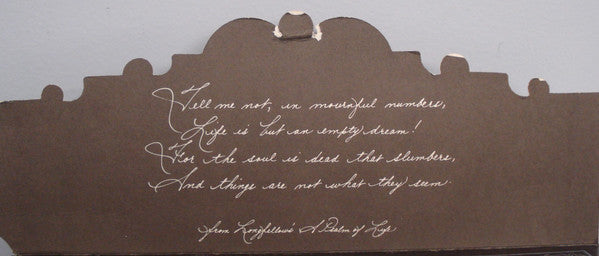 Tell me not, in mournful numbers,
Life is but an empty dream!
For the soul is dead that slumbers,
And things are not what they seem.
from Longfellow's A Psalm of Life